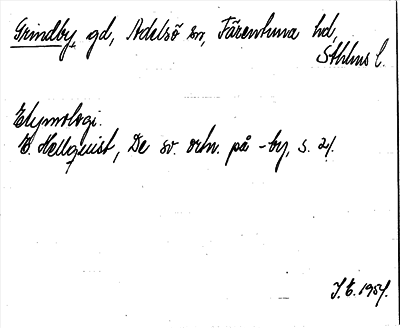 Grindby, gd, Adelsö sn, Färentuna hd,
Sthlms l.
Etymologi.
E. Hellquist, De sv. ortn. på -by, s. 21.
J. E. 1954.